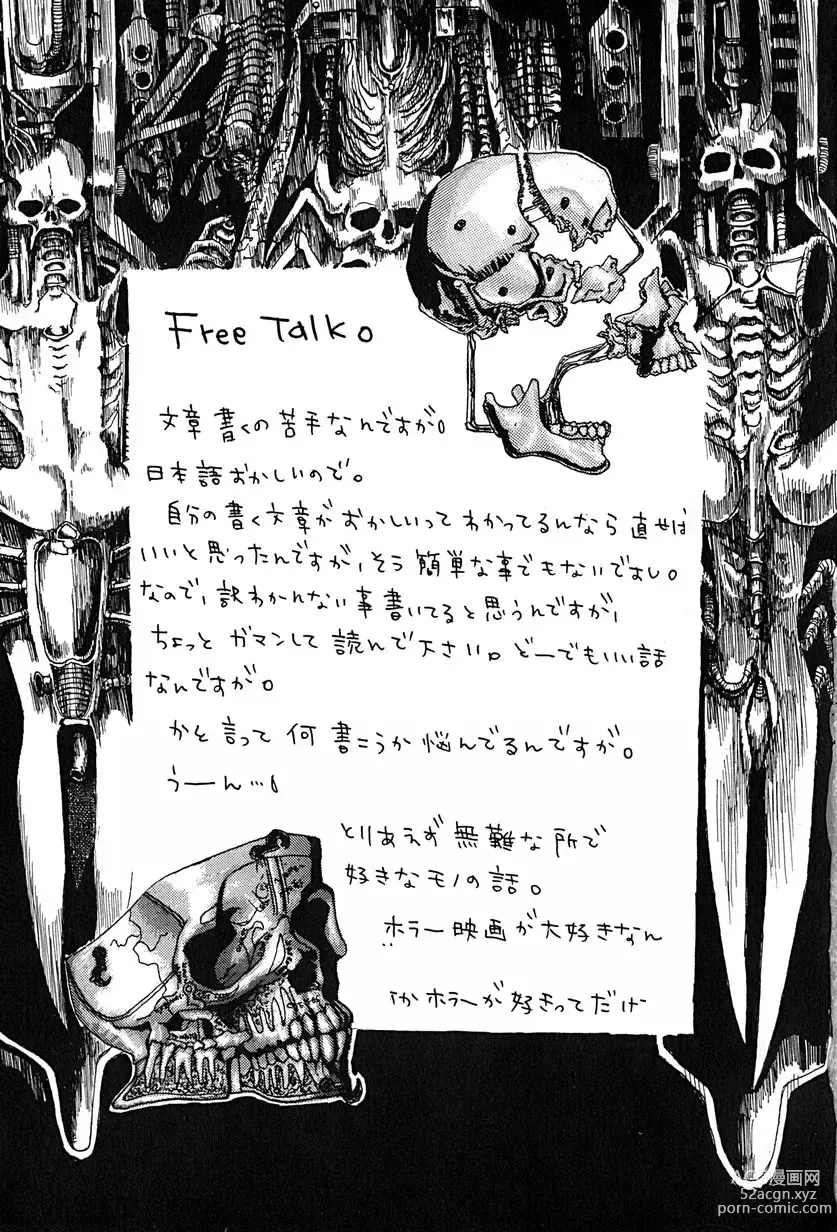 Free Talk。
文章書くの苦手なんですが。
日本語おかしいので。
自分の書く文章がおかしいってわかってるんなら直せば
いいと思ったんですが、そう簡単な事でもないですし。
なので、訳わかんない事書いてると思うんですが、
ちょっとガマンして読んで下さい。どーでもいい話
なんですが。
かと言って何書こうか悩んでるんですが。
うーん…。
とりあえず無難な所で
好きなモノの話。
ホラー映画が大好きなん
かホラーが好きってだけ
ACG漫画网
52acgn.com
porn-comic.com